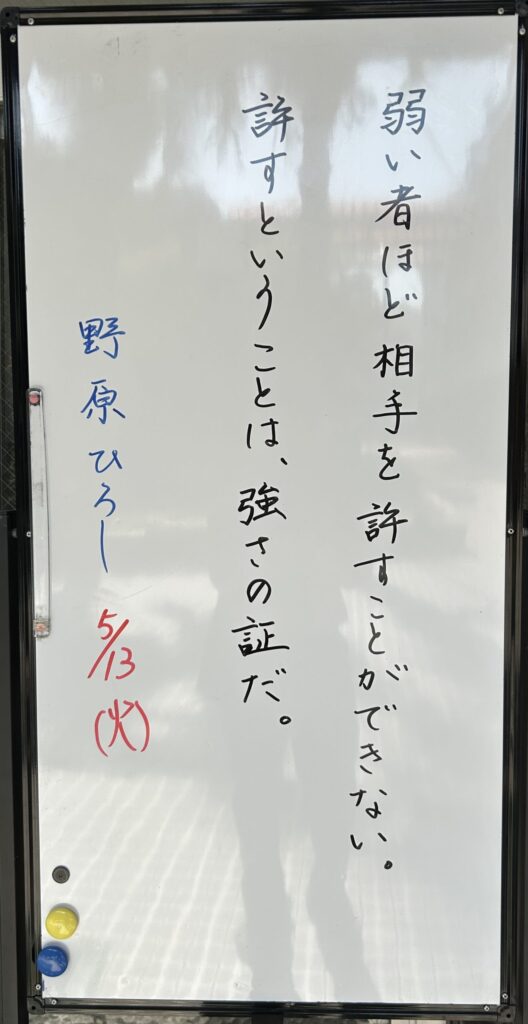 弱い者ほど相手を許すことができない。
許すということは、強さの証だ。
野原ひろし 5/13(火)